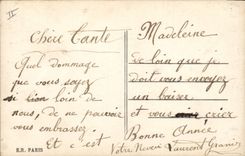 II
Chère Tante
Quel dommage
que vous soyez
si loin de
nous, de ne pouvoir
vous embrasser.
Et c'est
E.R. PARIS
Madeleine
de loin que je
doit vous envoyez
un baiser
et vous crier
Bonne Année
Votre Neveu Laurent Granis